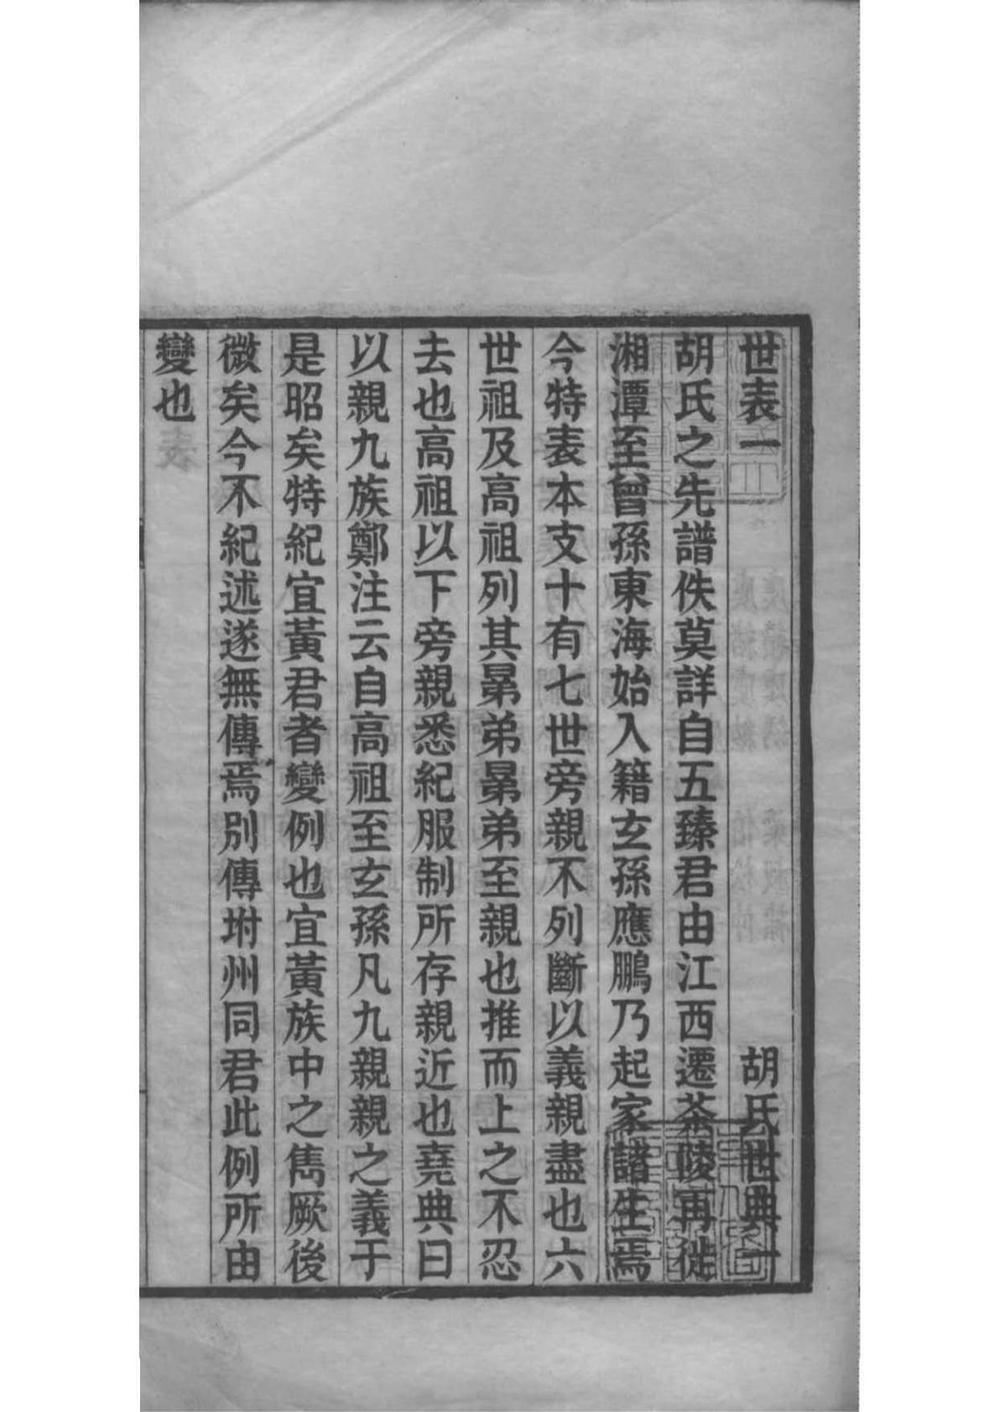 世表一　胡氏世典一
胡氏之先譜佚莫詳自五臻君由江西遷茶陵再徙
湘潭至曾孫東海始入籍玄孫應鵬乃起家諸生焉
今特表本支十有七世旁親不列斷以義親盡也六
世祖及高祖列其晜弟晜弟至親也推而上之不忍
去也高祖以下旁親悉紀服制所存親近也堯典曰
以親九族鄭注云自高祖至玄孫凡九親親之義于
是昭矣特紀宜黃君者變例也宜黃族中之雋厥後
微矣今不紀述遂無傳焉別傳坿州同君此例所由
變也